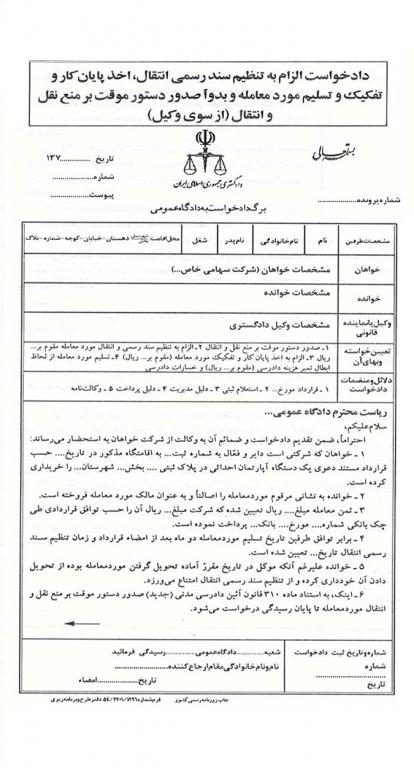 دادخواست الزام به تنظیم سند رسمی انتقال، اخذ پایان کار و
تفکیک و تسلیم مورد معامله و بدواً صدور دستور موقت بر منع نقل
و انتقال (از سوی وکیل)
بسمه تعالی
تاریخ ............... ۱۳۷
شماره ...............
پیوست ...............
دادگستری جمهوری اسلامی ایران
شماره پرونده ...............
برگ دادخواست به دادگاه عمومی
مشخصات طرفین
نام
نام خانوادگی
نام پدر
شغل
محل اقامت: دهستان - خیابان - کوچه - شماره - پلاک
خواهان
مشخصات خواهان (شرکت سهامی خاص...)
خوانده
مشخصات خوانده
وکیل یا نماینده قانونی
مشخصات وکیل دادگستری
تعیین خواسته وبهای آن
۱ـ صدور دستور موقت بر منع نقل و انتقال ۲ـ الزام به تنظیم سند رسمی و انتقال مورد معامله مقوم بر...
ریال ۳ـ الزام به اخذ پایان کار و تفکیک مورد معامله (مقوم بر... ریال) ۴ـ تسلیم مورد معامله از لحاظ
ابطال تمبر هزینه دادرسی (مقوم بر... ریال) و خسارات دادرسی
دلائل و منضمات دادخواست
۱ـ قرارداد مورخ... ۲ـ استعلام ثبتی ۳ـ دلیل مدیریت ۴ـ دلیل پرداخت ۵ـ وکالتنامه
ریاست محترم دادگاه عمومی...
سلام علیکم،
احتراماً، ضمن تقدیم دادخواست و ضمائم آن به وکالت از شرکت خواهان به استحضار می‌رساند:
۱ـ خواهان که شرکتی است دایر و فعّال به شماره ثبت... به اقامتگاه مذکور در تاریخ.... حسب
قرارداد مستند دعوی یک دستگاه آپارتمان احداثی در پلاک ثبتی .... بخش... شهرستان... را خریداری
کرده است.
۲ـ خوانده به نشانی مرقوم مورد معامله را اصالتاً و به عنوان مالک مورد معامله فروخته است.
۳ـ ثمن معامله مبلغ.... ریال تعیین شده که شرکت مبلغ... ریال آن را حسب توافق قراردادی طی
چک بانکی شماره.... مورخ.... بانک... پرداخت نموده است.
۴ـ برابر توافق طرفین تاریخ تسلیم مورد معامله دو ماه بعد از امضاء قرارداد و زمان تنظیم سند
رسمی انتقال تاریخ... تعیین شده است.
۵ـ خوانده علیرغم آنکه موکل در تاریخ مقررّ آماده تحویل گرفتن مورد معامله بوده از تحویل
دادن آن خودداری کرده و از تنظیم سند رسمی انتقال امتناع می‌ورزد.
۶ـ اینک، به استناد ماده ۳۱۰ قانون آئین دادرسی مدنی (جدید) صدور دستور موقت بر منع نقل و
انتقال مورد معامله تا پایان رسیدگی درخواست می‌شود.
شماره و تاریخ ثبت دادخواست
شماره
تاریخ
شعبه ............... دادگاه عمومی ............... رسیدگی فرمائید
نام و نام خانوادگی مقام ارجاع کننده ...............
تاریخ ............... امضاء
چاپ روزنامه رسمی کشور